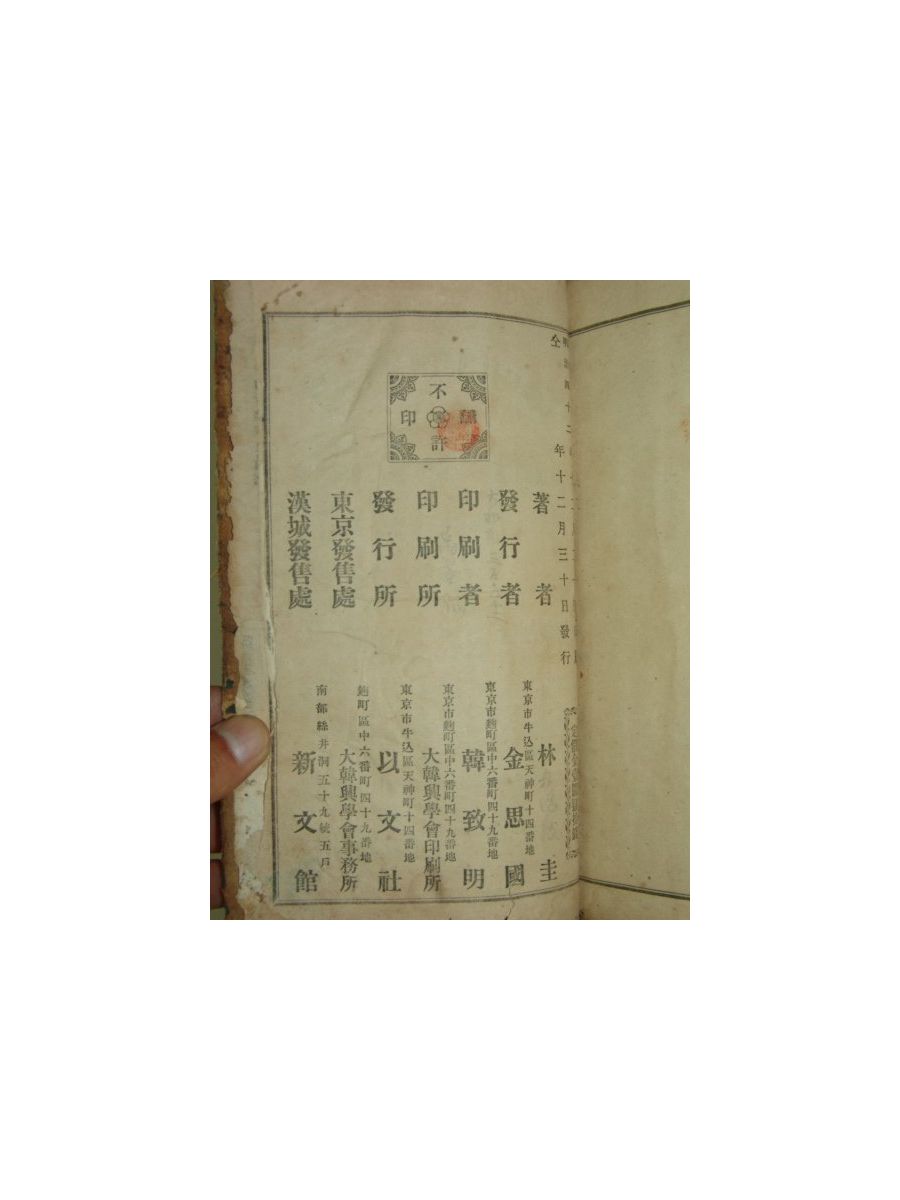 明治四十二
仝年十二月三十日發行
不許
印
著者
東京市牛込區天神町十四番地
林圭
發行者
東京市麴町區中六番町四十九番地
金思國
印刷者
東京市麴町區中六番町四十九番地
韓致明
印刷所
大韓興學會印刷所
發行所
東京市牛込區天神町十四番地
以文社
東京發售處
麴町區中六番町四十九番地
大韓興學會事務所
漢城發售處
南部絲井洞五十九統五戶
新文館